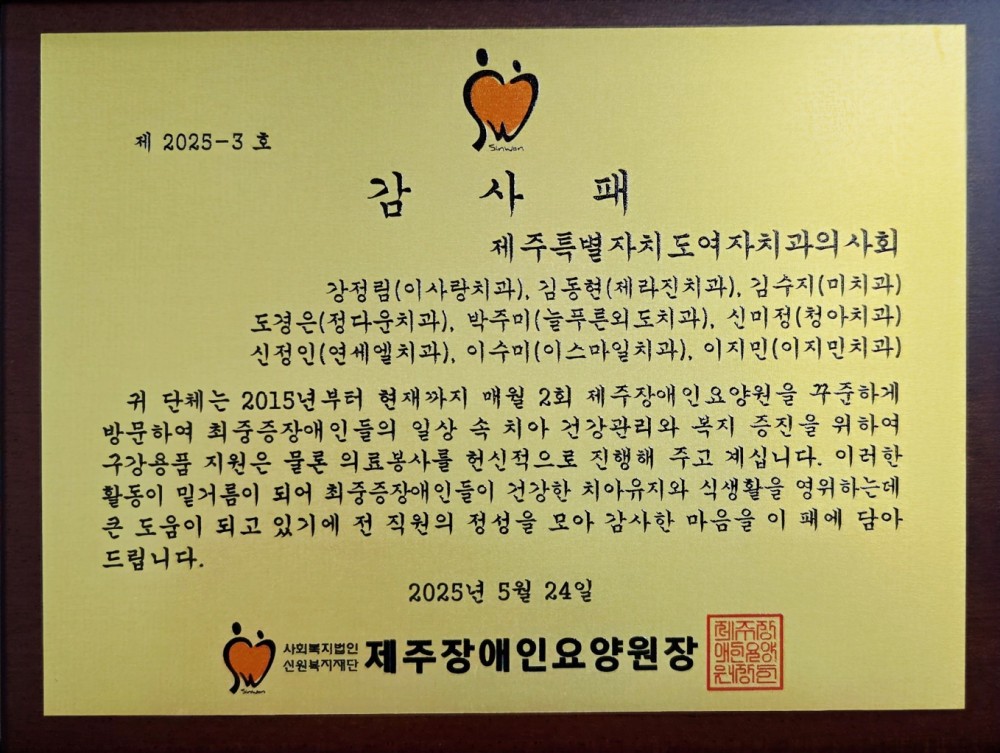 Sinwon
제 2025-3 호
감 사 패
제주특별자치도여자치과의사회
강정림(이사랑치과), 김동현(제라진치과), 김수지(미치과)
도경은(정다운치과), 박주미(늘푸른외도치과), 신미정(청아치과)
신정인(연세엘치과), 이수미(이스마일치과), 이지민(이지민치과)
귀 단체는 2015년부터 현재까지 매월 2회 제주장애인요양원을 꾸준하게
방문하여 최중증장애인들의 일상 속 치아 건강관리와 복지 증진을 위하여
구강용품 지원은 물론 의료봉사를 헌신적으로 진행해 주고 계십니다. 이러한
활동이 밑거름이 되어 최중증장애인들이 건강한 치아유지와 식생활을 영위하는데
큰 도움이 되고 있기에 전 직원의 정성을 모아 감사한 마음을 이 패에 담아
드립니다.
2025년 5월 24일
Sinwon
사회복지법인
신원복지재단
제주장애인요양원장
제주장
애인요양
원장인